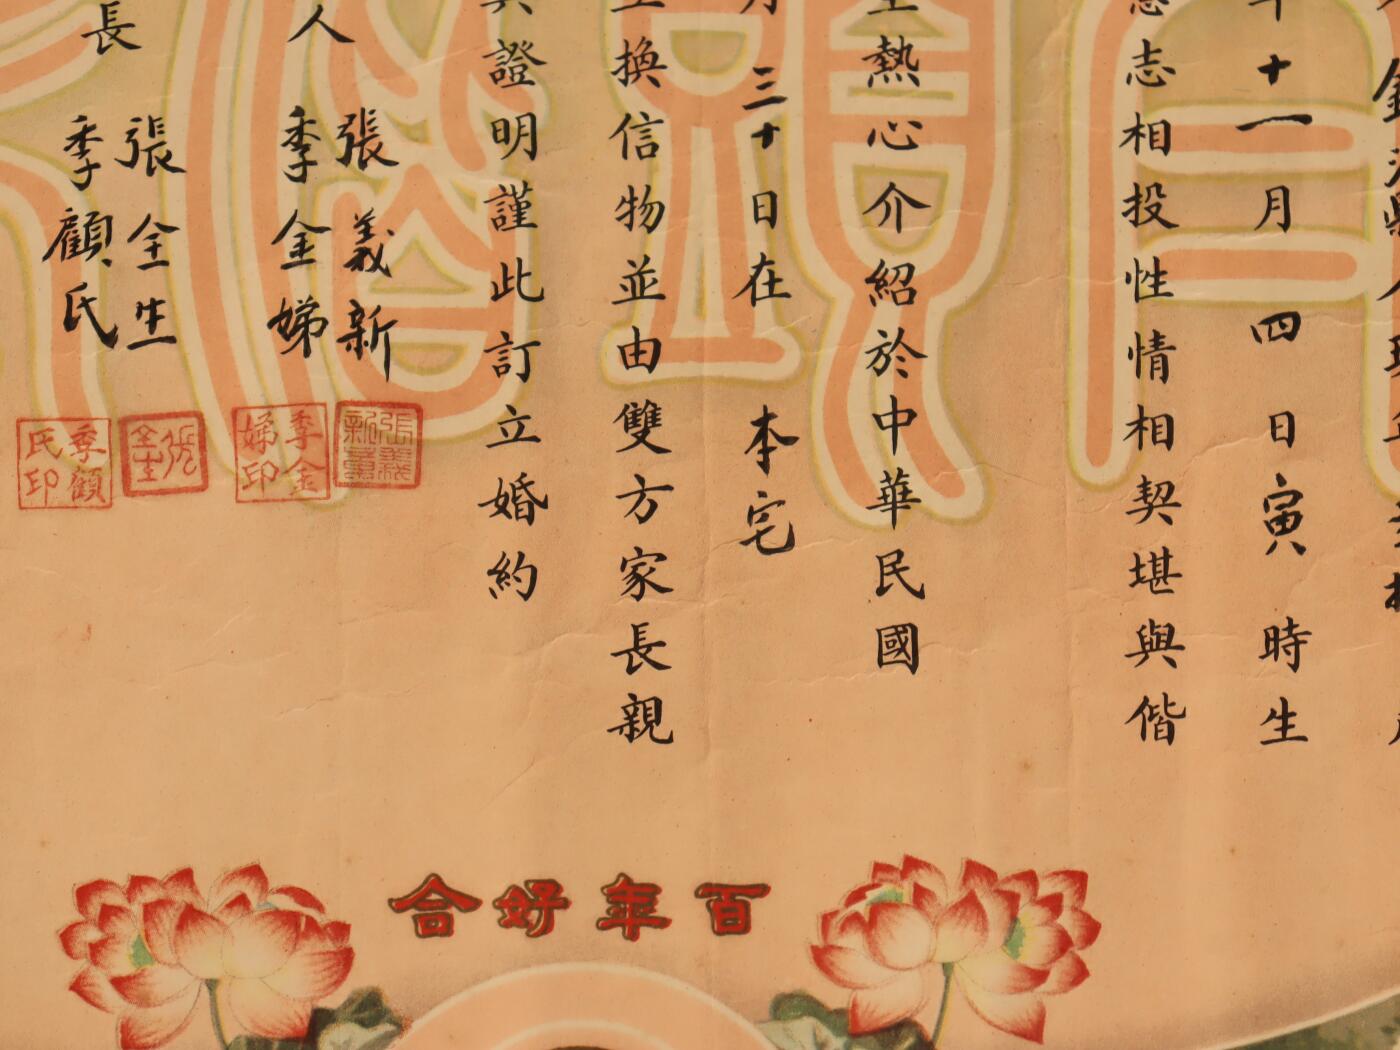 年十一月四日寅時生
志相投性情相契堪與偕
熱心介紹於中華民國
月三十日在本宅
換信物並由雙方家長親
證明謹此訂立婚約
人
張義新
季金娣
長
張全生
季顧氏
張義新
季金娣印
張全生
季顧氏印
百年好合